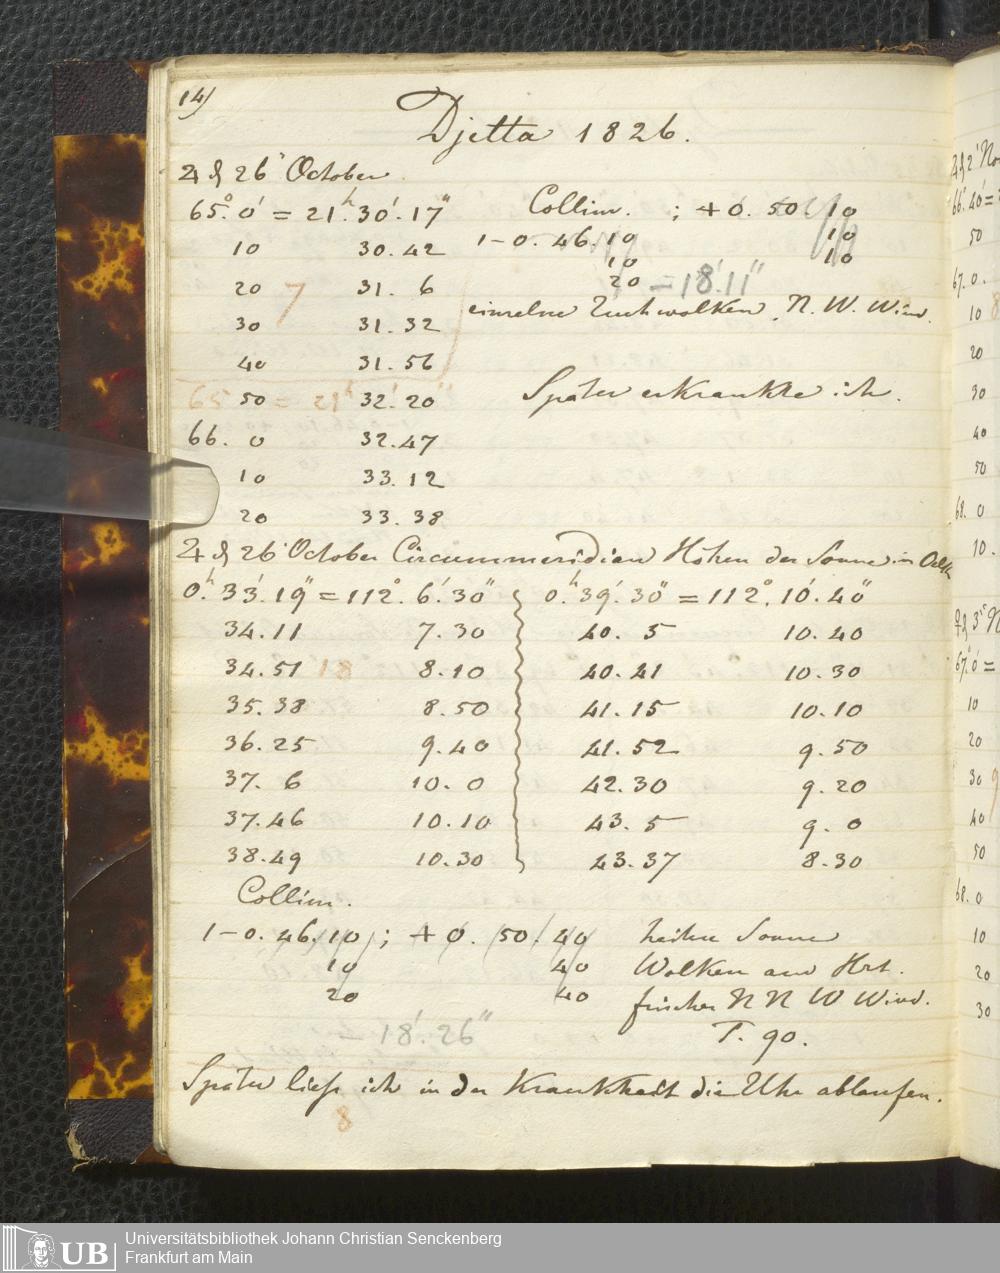 14)
Djetta 1826.
♃ d 26t October
65°. 0' = 21h. 30'. 17"   Collim. ; + 0. 50. 10
10   30. 42   1 - 0. 46. 10   10
10   10
20   7   31. 6   20 = 18'. 11"
einzelne Wolken, N. W. Wind.
30   31. 32
40   31. 56
65 50 = 21h 32. 20   Später erkrankte ich.
66. 0   32. 47
10   33. 12
20   33. 38
♃ d 26t October Circummeridian Höhen der Sonne in
0h. 33'. 19" = 112°. 6'. 30"   0h. 39'. 30" = 112°. 10'. 40"
34. 11   7. 30   40. 5   10. 40
34. 51   18   8. 10   40. 41   10. 30
35. 38   8. 50   41. 15   10. 10
36. 25   9. 40   41. 52   9. 50
37. 6   10. 0   42. 30   9. 20
37. 46   10. 10   43. 5   9. 0
38. 49   10. 30   43. 37   8. 30
Collim.
1 - 0. 46. 10 ; + 0. 50. 40   heitere Sonne
10   40   Wolken am Hrt.
20   40   frischer N N W Wind.
- 18'. 26"   T. 90.
Später ließ ich in der Krankheit die Uhr ablaufen.
8
♃ d 2t No
66°. 40' =
50
67. 0.
10
20
30
40
50
68. 0
10.
♀ d 3t N
67°. 0' =
10
20
30
40
50
68. 0
10
20
30
UB
Universitätsbibliothek Johann Christian Senckenberg
Frankfurt am Main